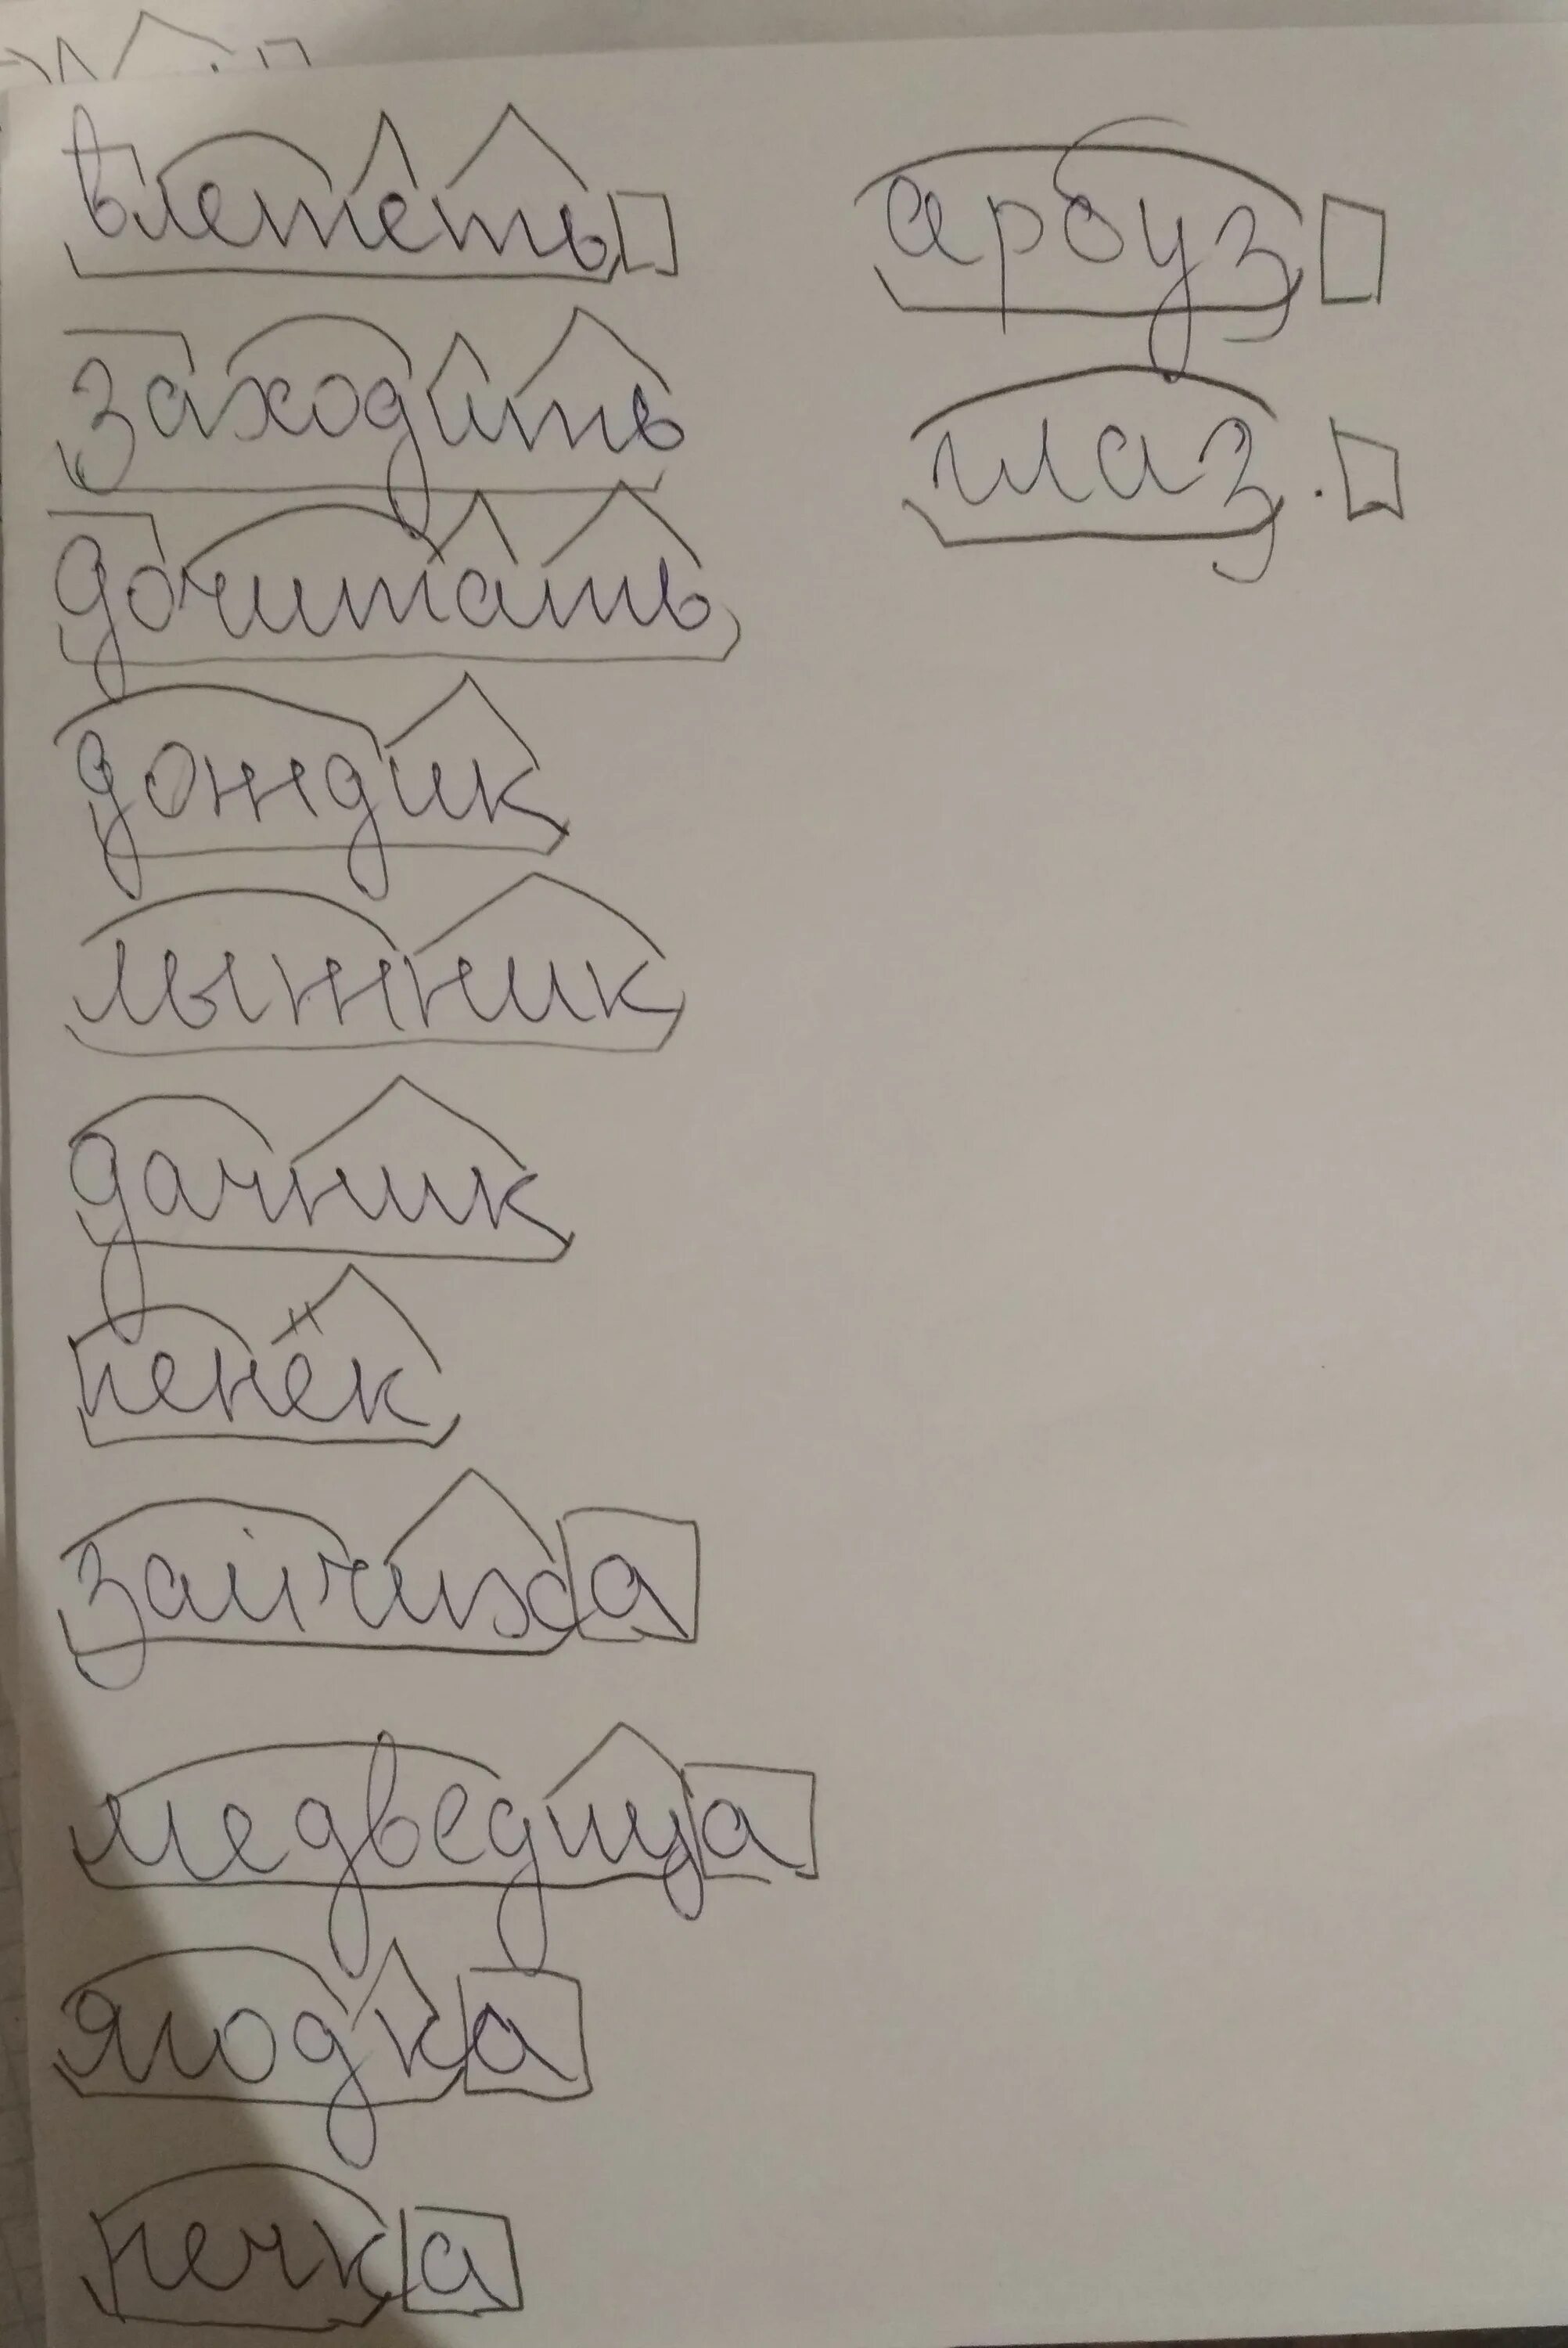 влететь
заходить
дочитать
дождик
лыжник
дачник
пенёк
зайчиха
медведица
ягодка
печка
арбуз
глаз